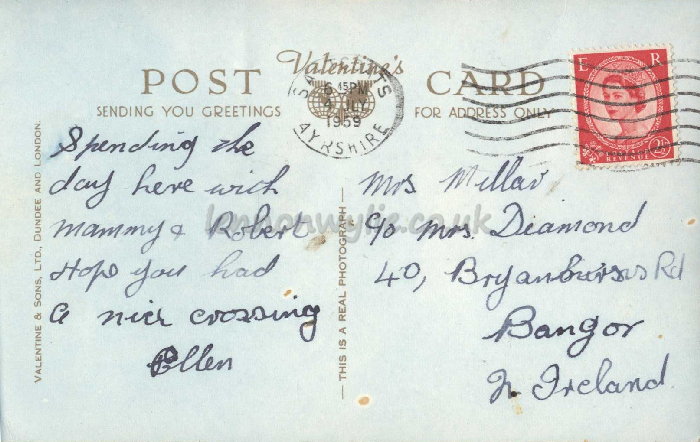 Valentine's
POST CARD
SENDING YOU GREETINGS
FOR ADDRESS ONLY
6.45PM
JLY
1959
AYRSHIRE
E R
POSTAGE
REVENUE
2½
Spending the
day here with
Mammy & Robert
Hope you had
a nice crossing
Ellen
Mrs Millar
c/o Mrs. Diamond
40, Bryansburn Rd
Bangor
N. Ireland
VALENTINE & SONS, LTD., DUNDEE AND LONDON.
— THIS IS A REAL PHOTOGRAPH —